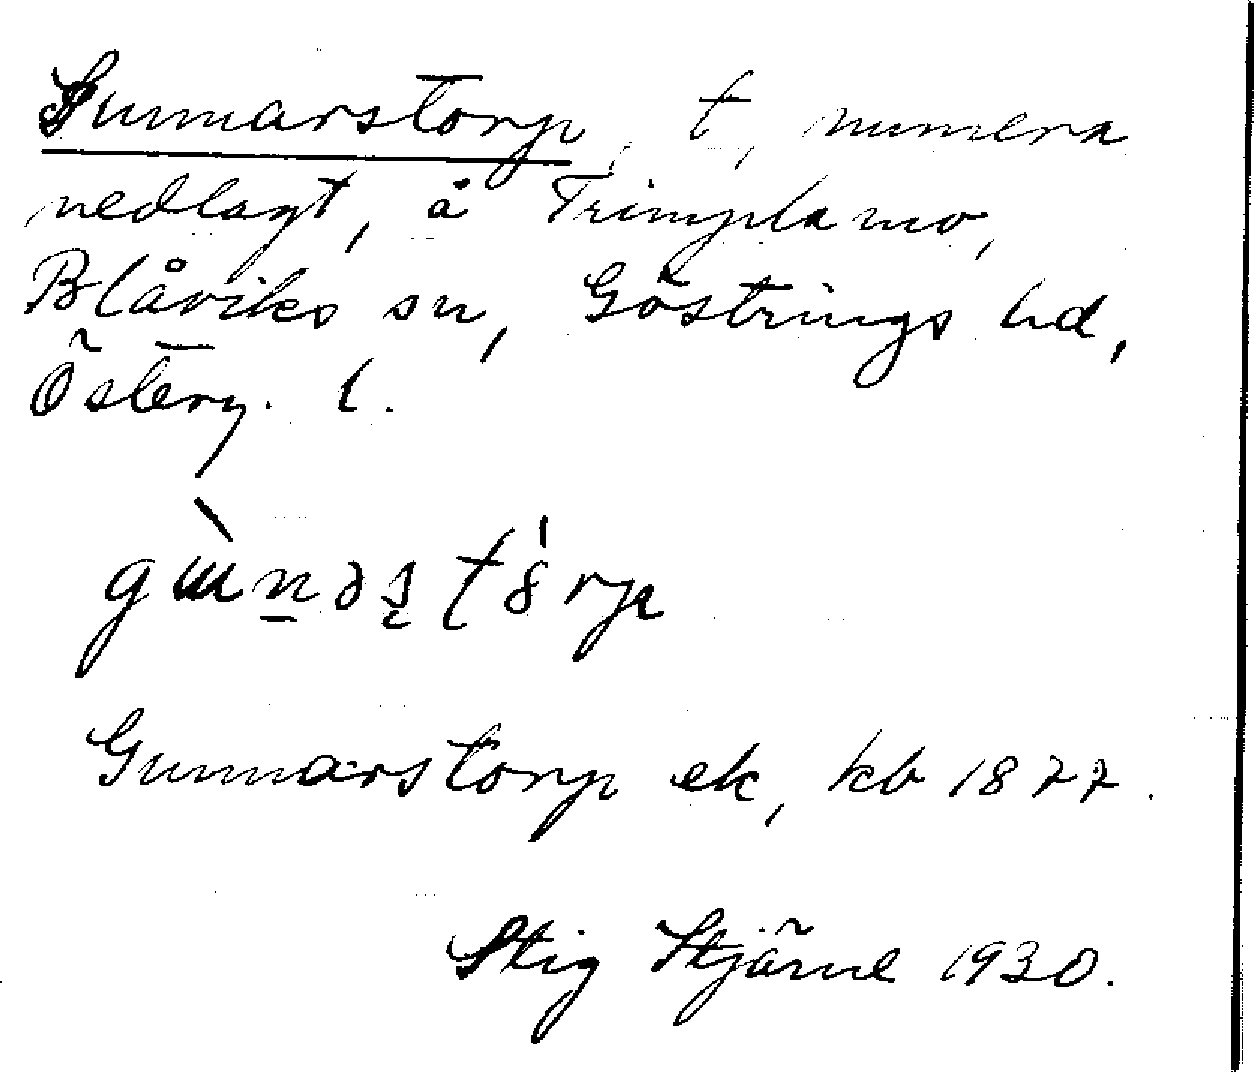 Gunnarstorp, t, numera
nedlagt, å Trimplamo,
Blåviks sn, Göstrings hd,
Österg. l.
Gunnarstorp ek, kb 1877.
Stig Stjärne 1930.